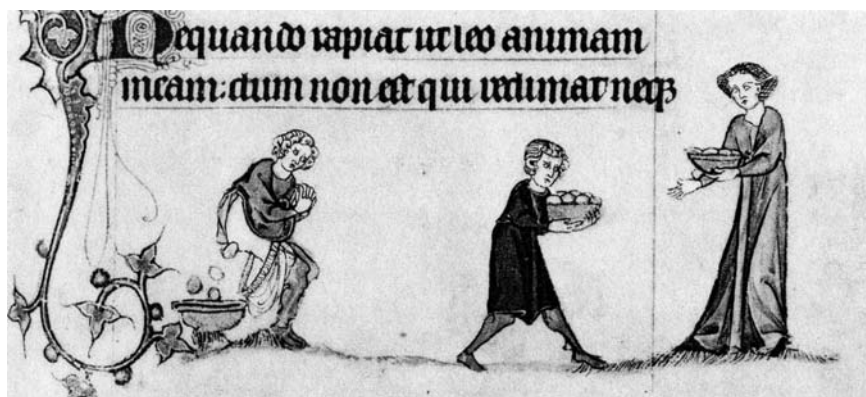 Nequando rapiat ut leo animam
meam: dum non est qui redimat neqꝫ